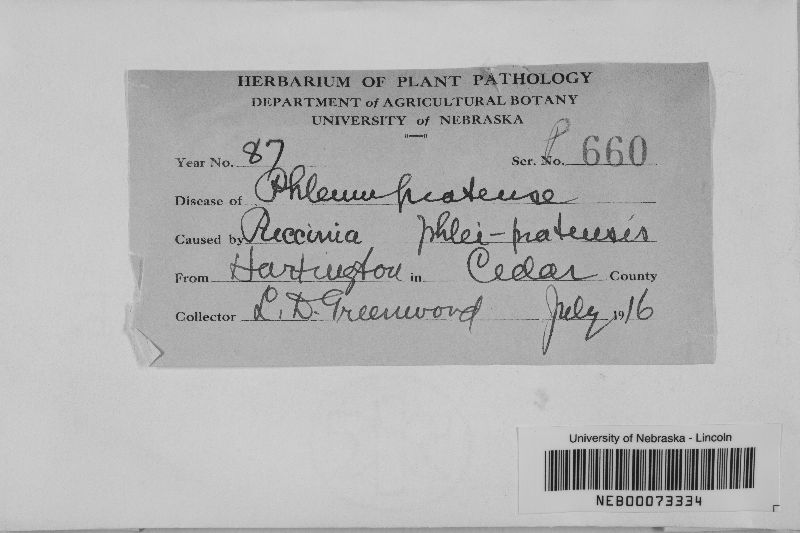 HERBARIUM OF PLANT PATHOLOGY
DEPARTMENT of AGRICULTURAL BOTANY
UNIVERSITY of NEBRASKA
Year No. 87 Ser. No. P 660
Disease of Phleum pratense
Caused by Puccinia phlei-pratensis
From Hartington in Cedar County
Collector L. D. Greenwood July 1916
University of Nebraska - Lincoln
NEB00073334